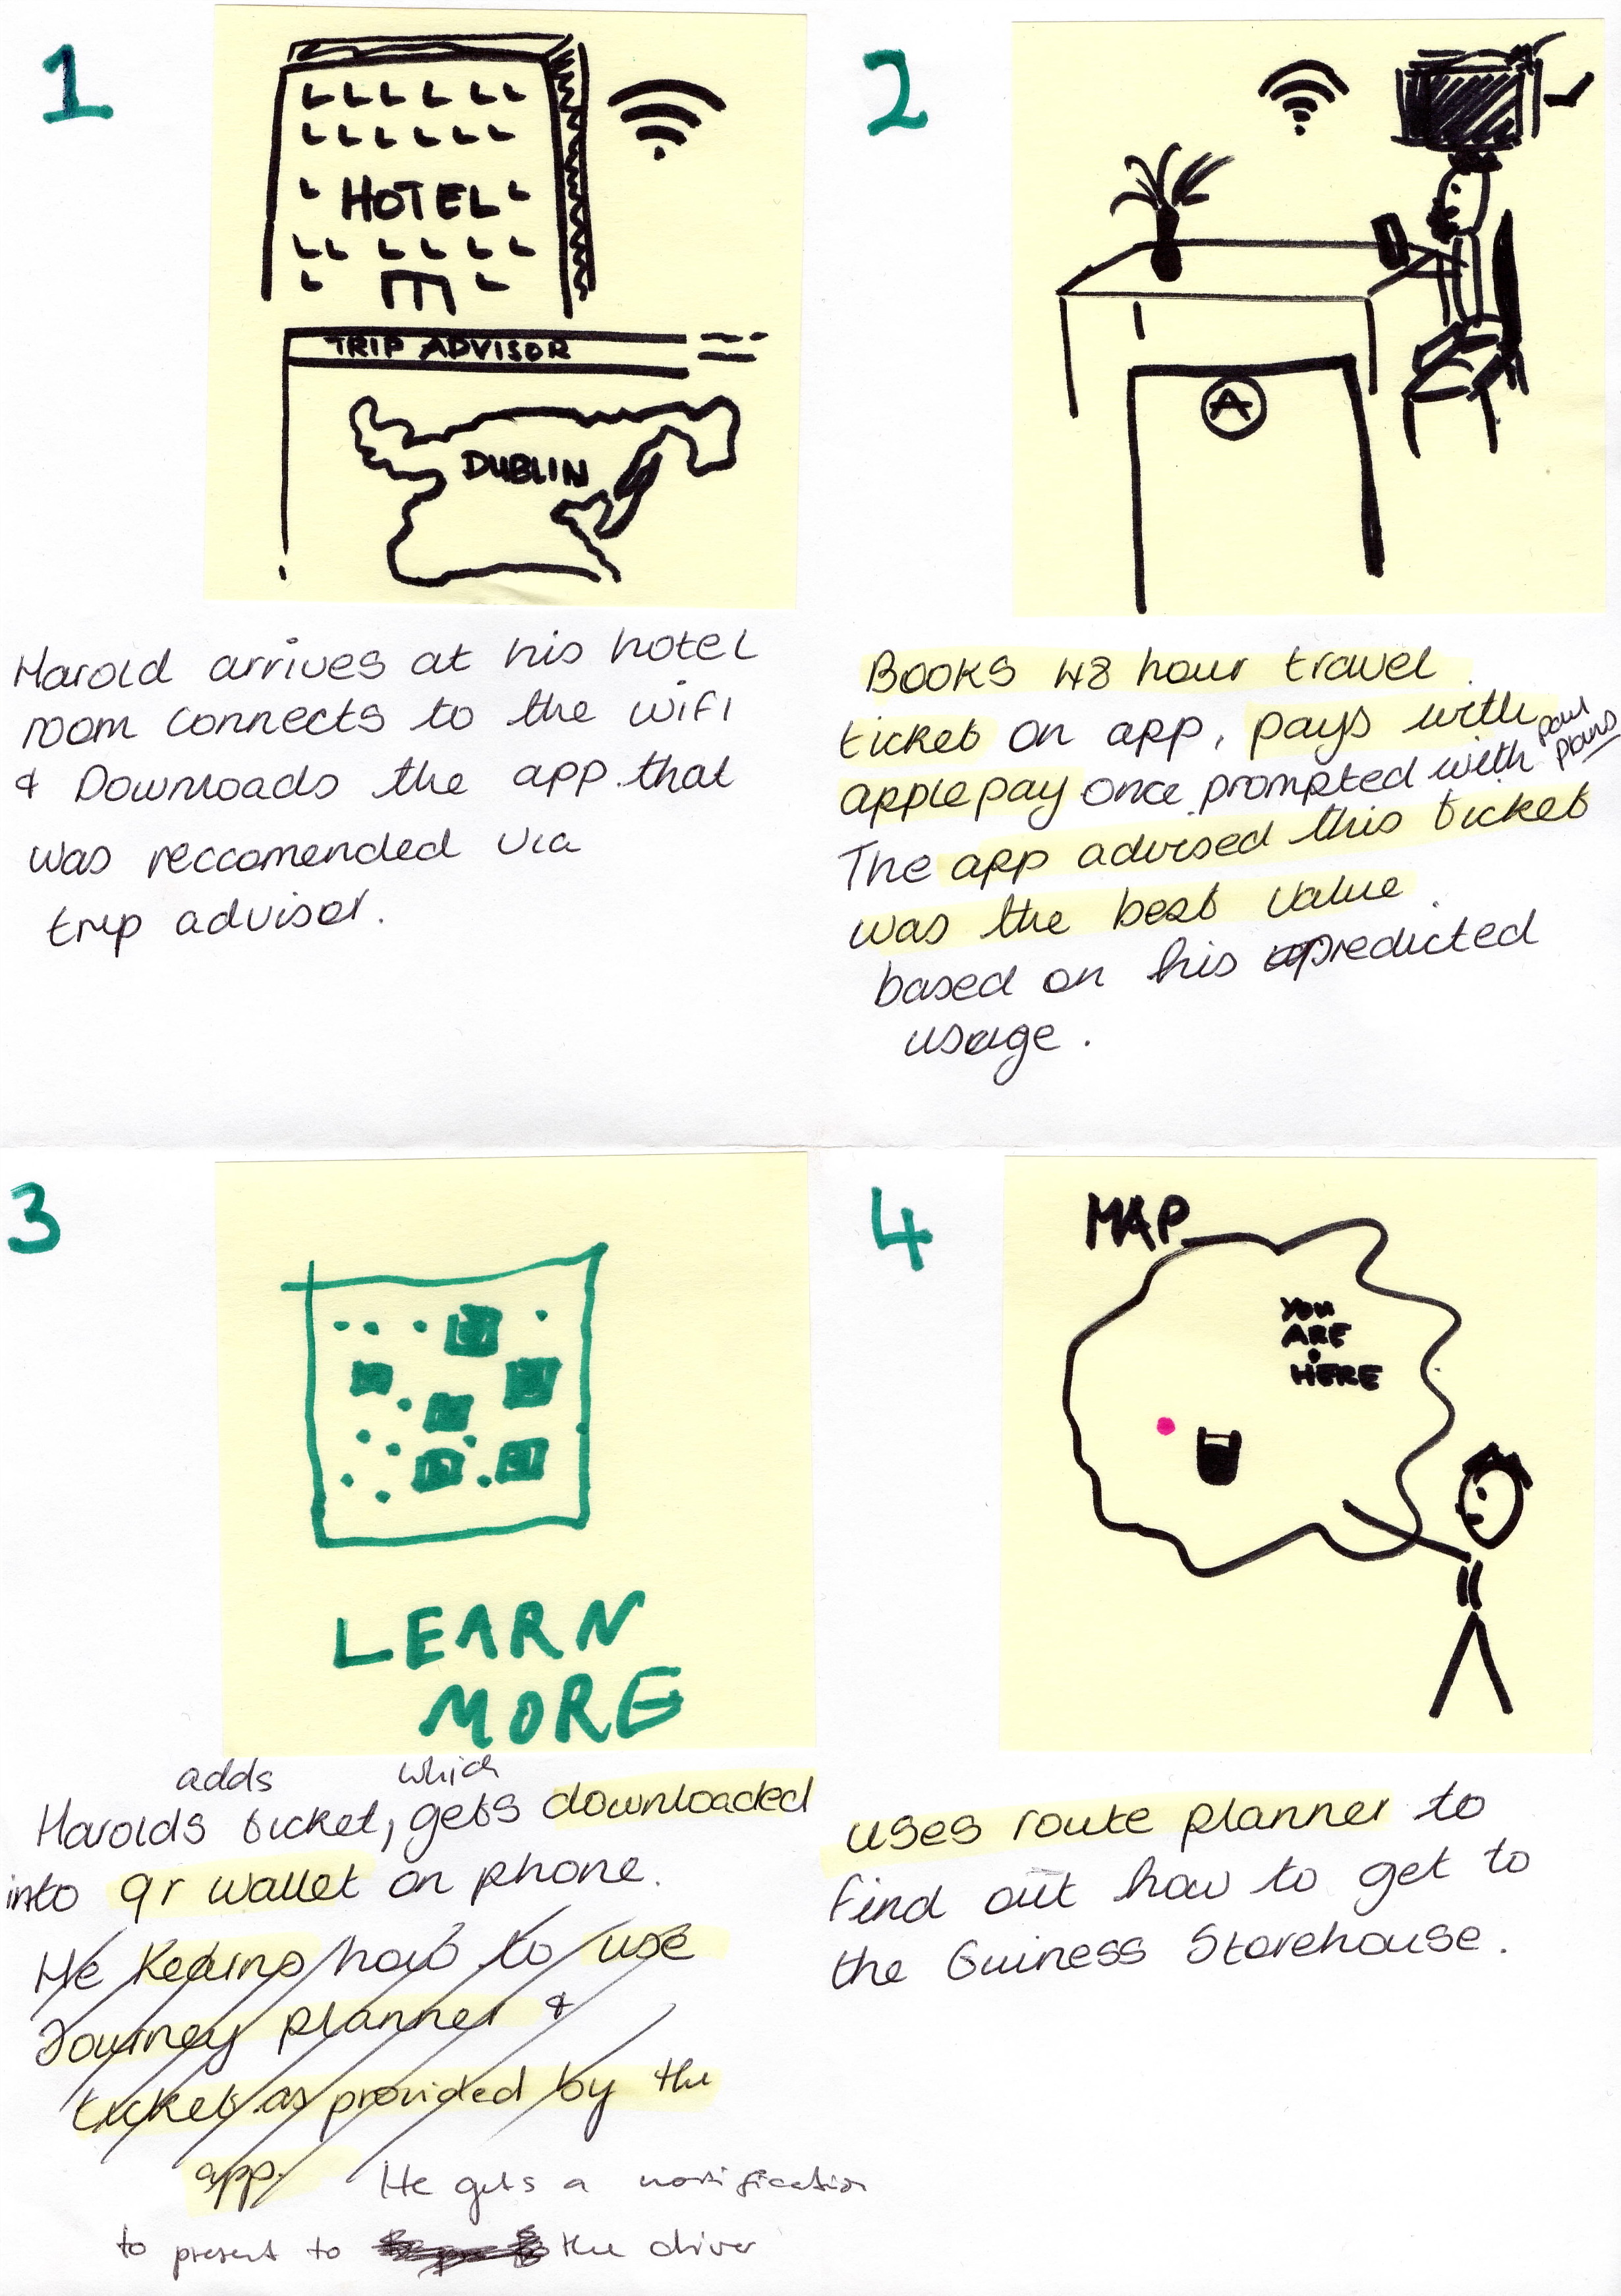 1
HOTEL
TRIP ADVISOR
DUBLIN
Harold arrives at his hotel
room connects to the wifi
& Downloads the app that
was reccomended via
trip advisor.
2
A
Books 48 hour travel
ticket on app, pays with
applepay once prompted with
plans
The app advised this ticket
was the best value.
based on his predicted
usage.
3
LEARN
MORE
adds which
Harolds ticket, gets downloaded
into qr wallet on phone.
He learns how to use
Journey planner &
ticket as provided by the
app. He gets a notification
to present to the driver
4
MAP
YOU
ARE
HERE
uses route planner to
find out how to get to
the Guiness Storehouse.